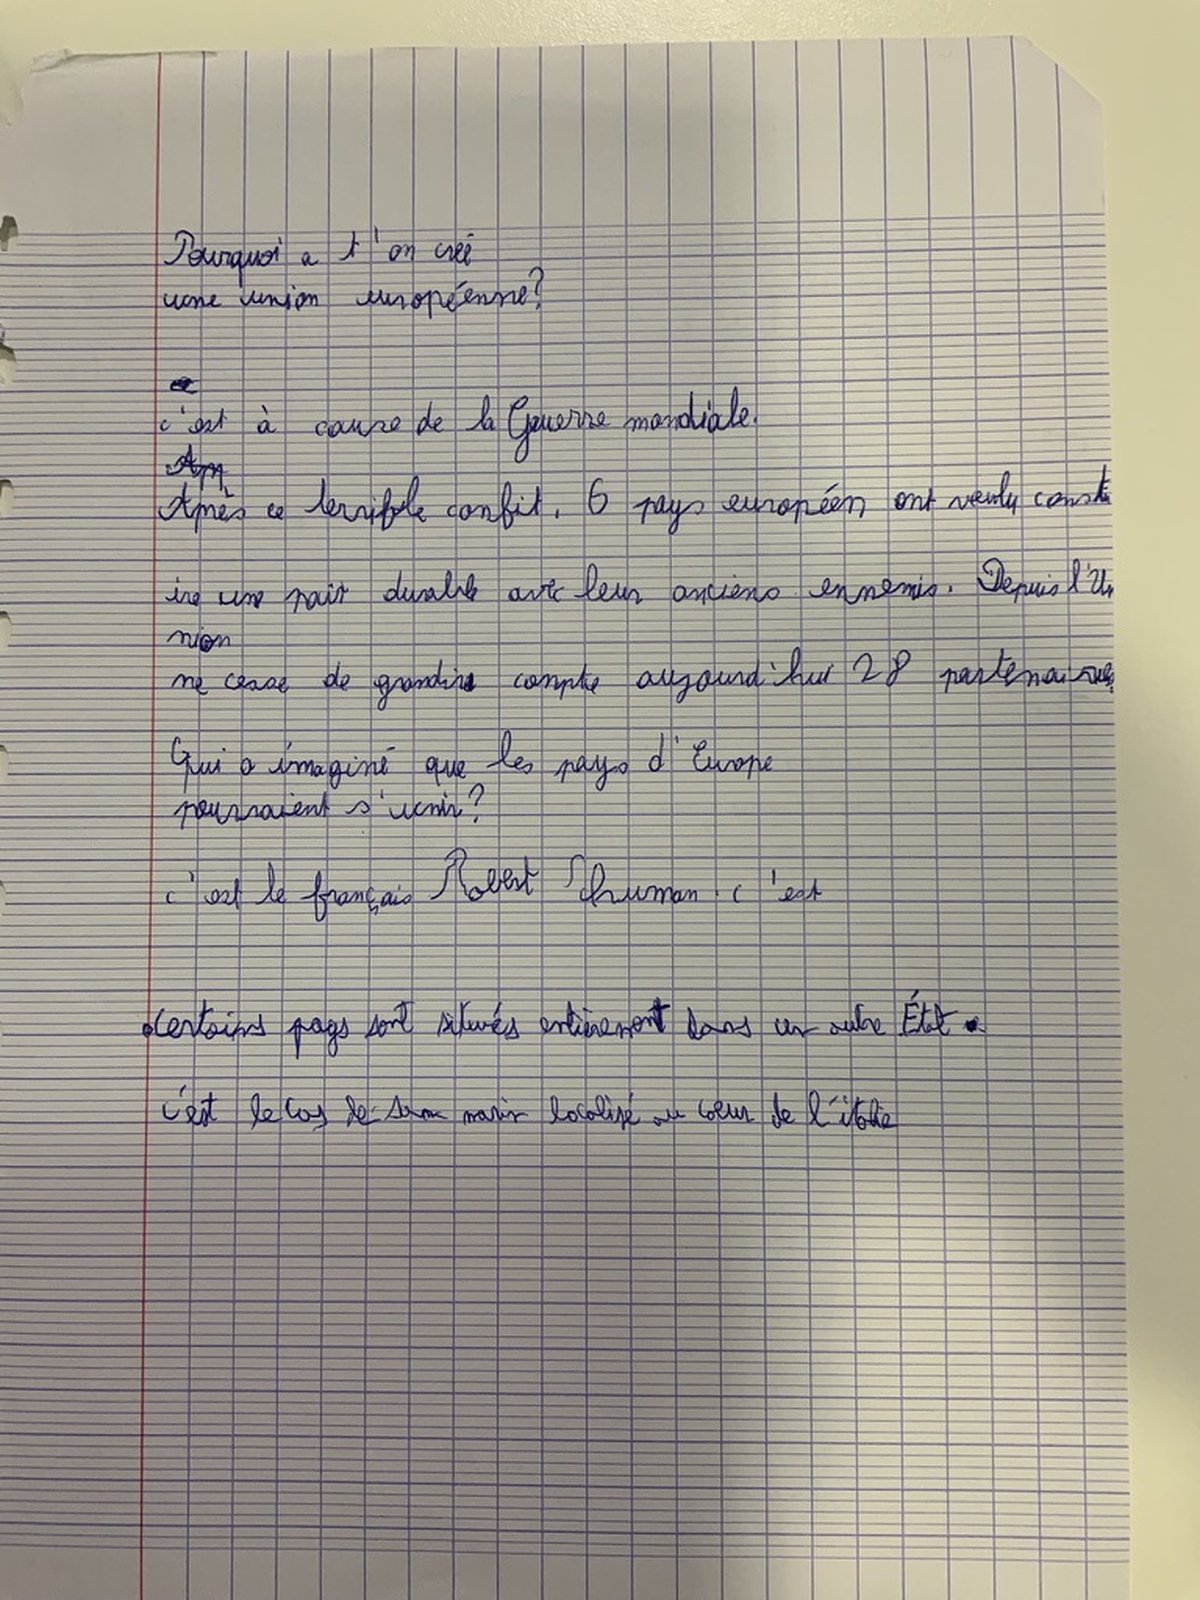 Pourquoi a t'on créé
une union européenne?
c'est à cause de la Guerre mondiale.
Après ce terrible conflit. 6 pays européen ont voulu const
ire une paix durable avec leur anciens ennemis. Depuis l'U
nion
ne cesse de grandire compte aujourd'hui 28 partenaires
Qui a imaginé que les pays d'Europe
pourraient s'unir?
c'est le français Robert Schuman. c'est
Certains pays sont situés entièrement dans un autre État
c'est le cas de san marin localisé au coeur de l'italie